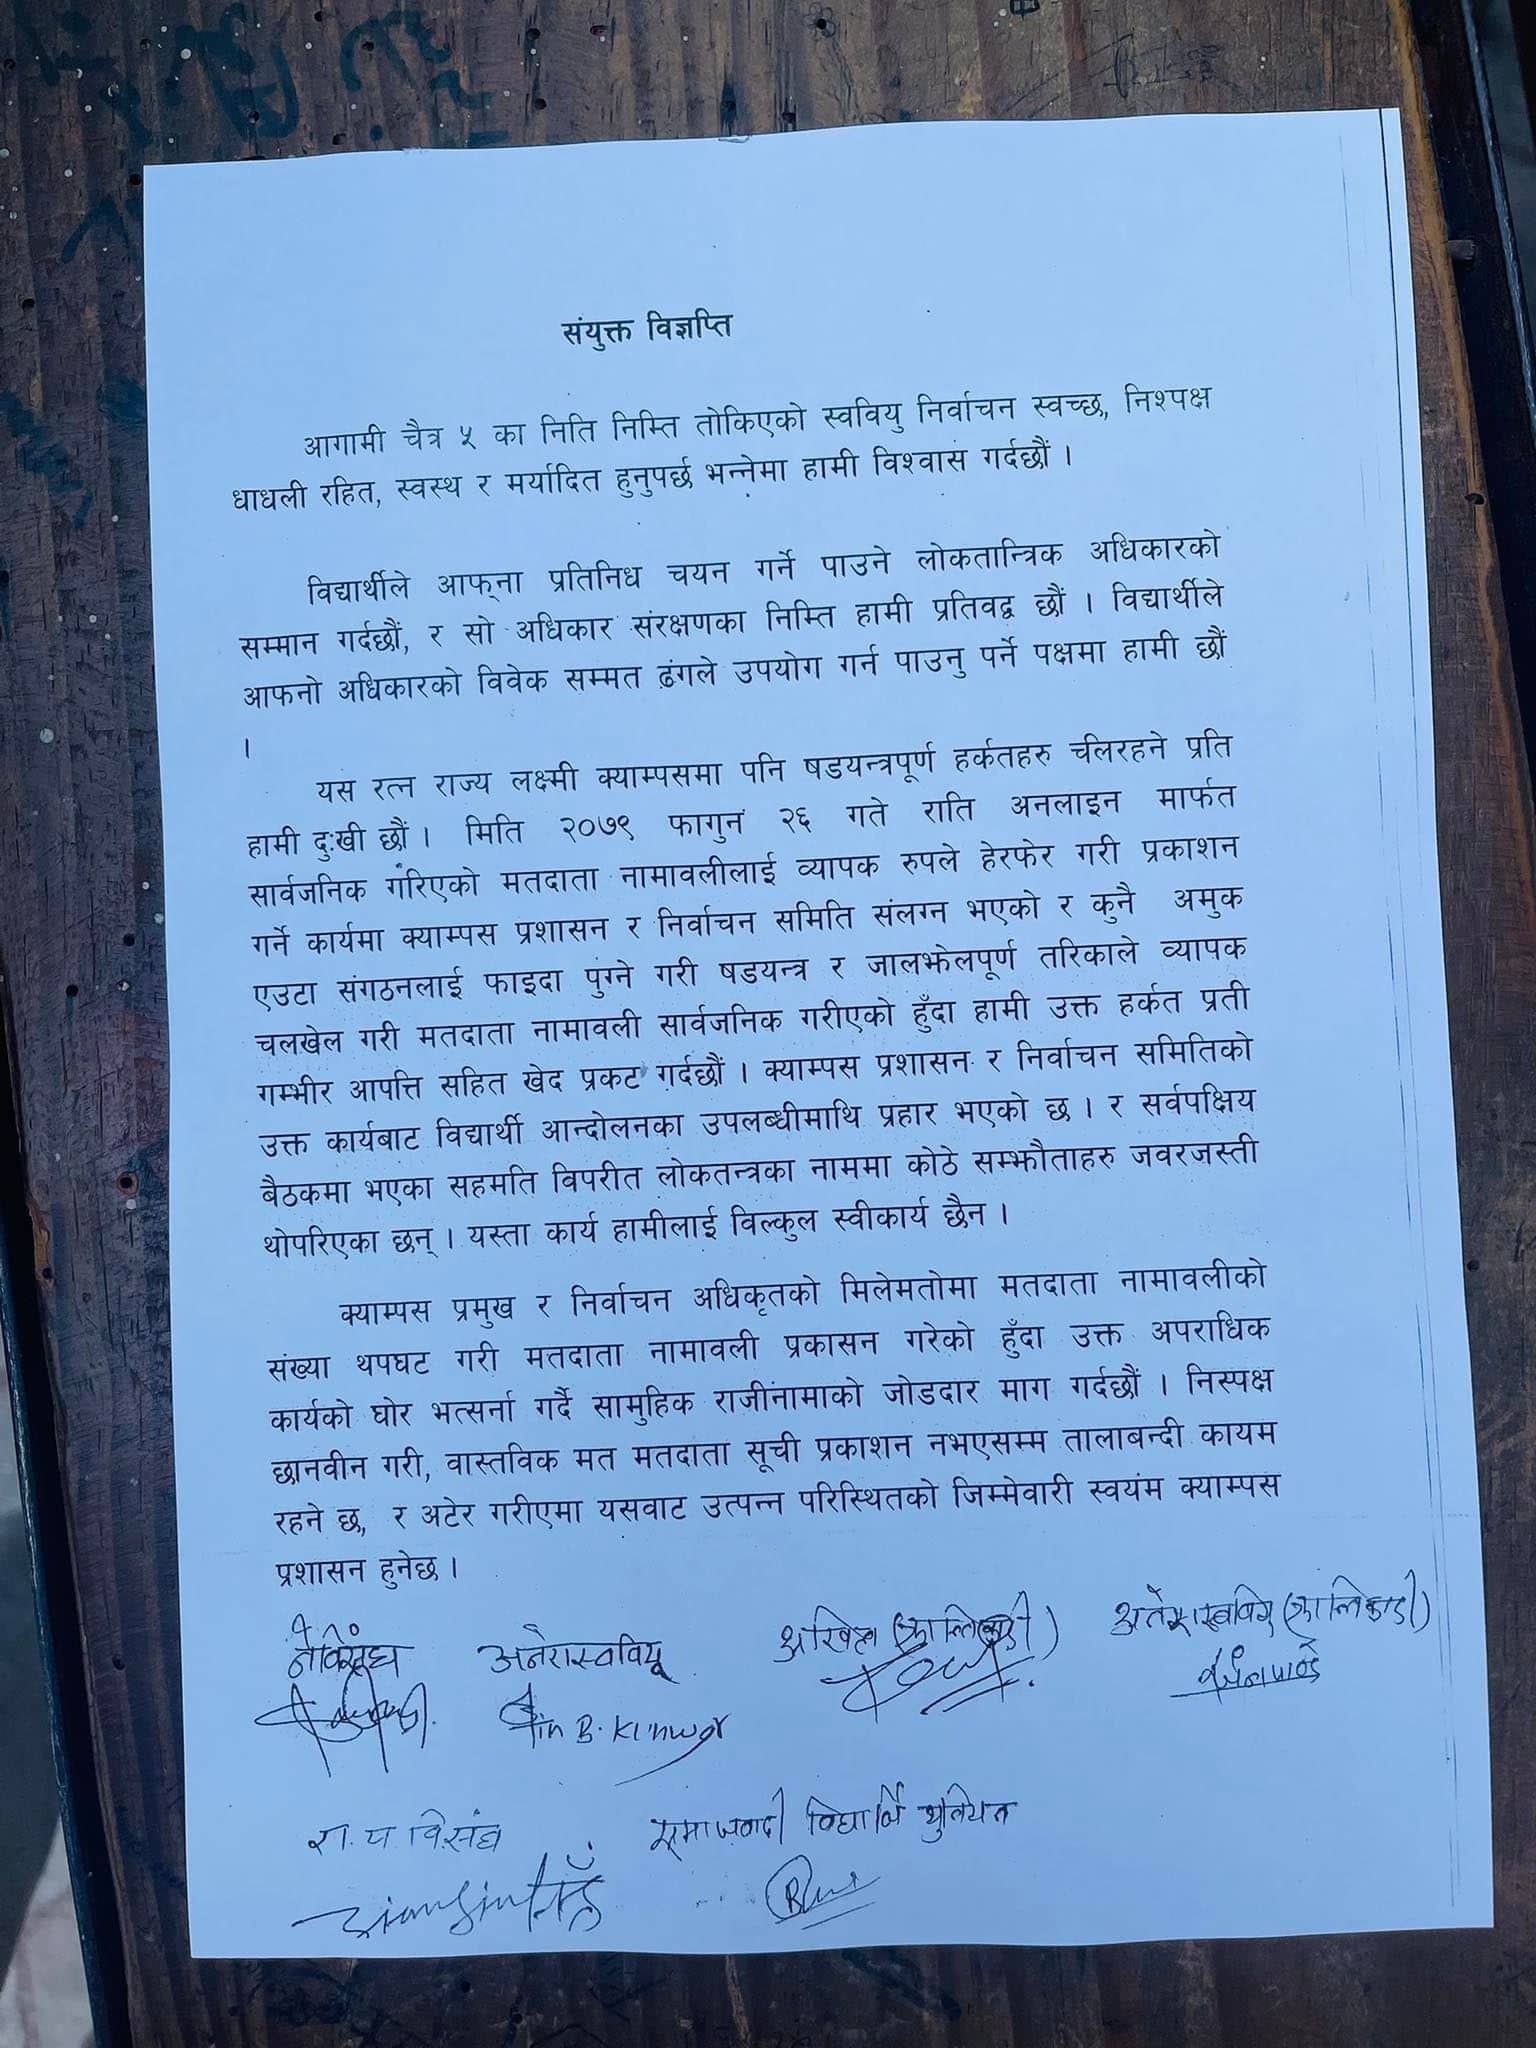 संयुक्त विज्ञप्ति
आगामी चैत्र ५ का निति निम्ति तोकिएको स्ववियु निर्वाचन स्वच्छ, निश्पक्ष
धाधली रहित, स्वस्थ र मर्यादित हुनुपर्छ भन्नेमा हामी विश्वास गर्दछौं ।
विद्यार्थीले आफ्ना प्रतिनिध चयन गर्ने पाउने लोकतान्त्रिक अधिकारको
सम्मान गर्दछौं, र सो अधिकार संरक्षणका निम्ति हामी प्रतिवद्व छौं । विद्यार्थीले
आफनो अधिकारको विवेक सम्मत ढंगले उपयोग गर्न पाउनु पर्ने पक्षमा हामी छौं
।
यस रत्न राज्य लक्ष्मी क्याम्पसमा पनि षडयन्त्रपूर्ण हर्कतहरु चलिरहने प्रति
हामी दुःखी छौं । मिति २०७९ फागुन २६ गते राति अनलाइन मार्फत
सार्वजनिक गरिएको मतदाता नामावलीलाई व्यापक रुपले हेरफेर गरी प्रकाशन
गर्ने कार्यमा क्याम्पस प्रशासन र निर्वाचन समिति संलग्न भएको र कुनै अमुक
एउटा संगठनलाई फाइदा पुग्ने गरी षडयन्त्र र जालझेलपूर्ण तरिकाले व्यापक
चलखेल गरी मतदाता नामावली सार्वजनिक गरीएको हुँदा हामी उक्त हर्कत प्रती
गम्भीर आपत्ति सहित खेद प्रकट गर्दछौं । क्याम्पस प्रशासन र निर्वाचन समितिको
उक्त कार्यबाट विद्यार्थी आन्दोलनका उपलब्धीमाथि प्रहार भएको छ । र सर्वपक्षिय
बैठकमा भएका सहमति विपरीत लोकतन्त्रका नाममा कोठे सम्झौताहरु जवरजस्ती
थोपरिएका छन् । यस्ता कार्य हामीलाई विल्कुल स्वीकार्य छैन ।
क्याम्पस प्रमुख र निर्वाचन अधिकृतको मिलेमतोमा मतदाता नामावलीको
संख्या थपघट गरी मतदाता नामावली प्रकासन गरेको हुँदा उक्त अपराधिक
कार्यको घोर भत्सर्ना गर्दै सामुहिक राजीनामाको जोडदार माग गर्दछौं । निस्पक्ष
छानवीन गरी, वास्तविक मत मतदाता सूची प्रकाशन नभएसम्म तालाबन्दी कायम
रहने छ, र अटेर गरीएमा यसवाट उत्पन्न परिस्थितको जिम्मेवारी स्वयंम क्याम्पस
प्रशासन हुनेछ ।
नेविसंघ अनेरास्ववियू अखिल (क्रान्तिकारी) अनेरास्ववियु (क्रान्तिकारी)
B. Kunwar
रा.प्र.वि.संघ समाजवादी विद्यार्थी युनियन